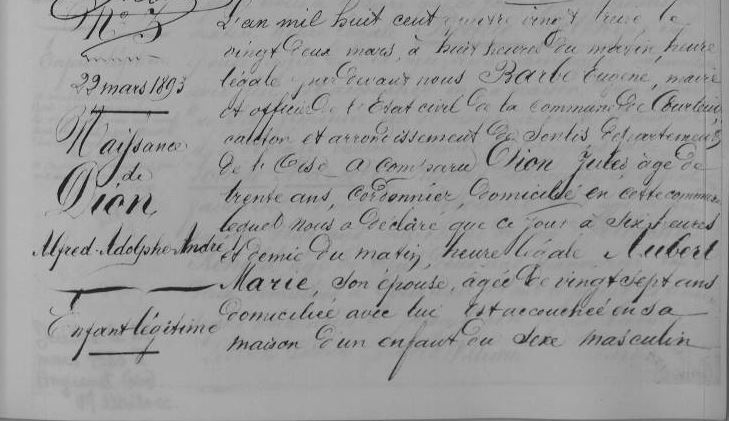 No 5
22 mars 1893
Naissance
de
Dion
Alfred-Adolphe-André
Enfant légitime
L'an mil huit cent quatre vingt treize le
vingt deux mars, à huit heures du matin, heure
légale par devant nous Barbe Eugène, maire
et officier de l'Etat civil de la commune de Courteuil,
canton et arrondissement de Senlis département
de l'Oise a comparu Dion Jules âgé de
trente ans, cordonnier, domicilié en cette commune
lequel nous a déclaré que ce jour à six heures
et demie du matin, heure légale Aubert
Marie, son épouse, âgée de vingt sept ans
domiciliée avec lui est accouchée en sa
maison d'un enfant du sexe masculin